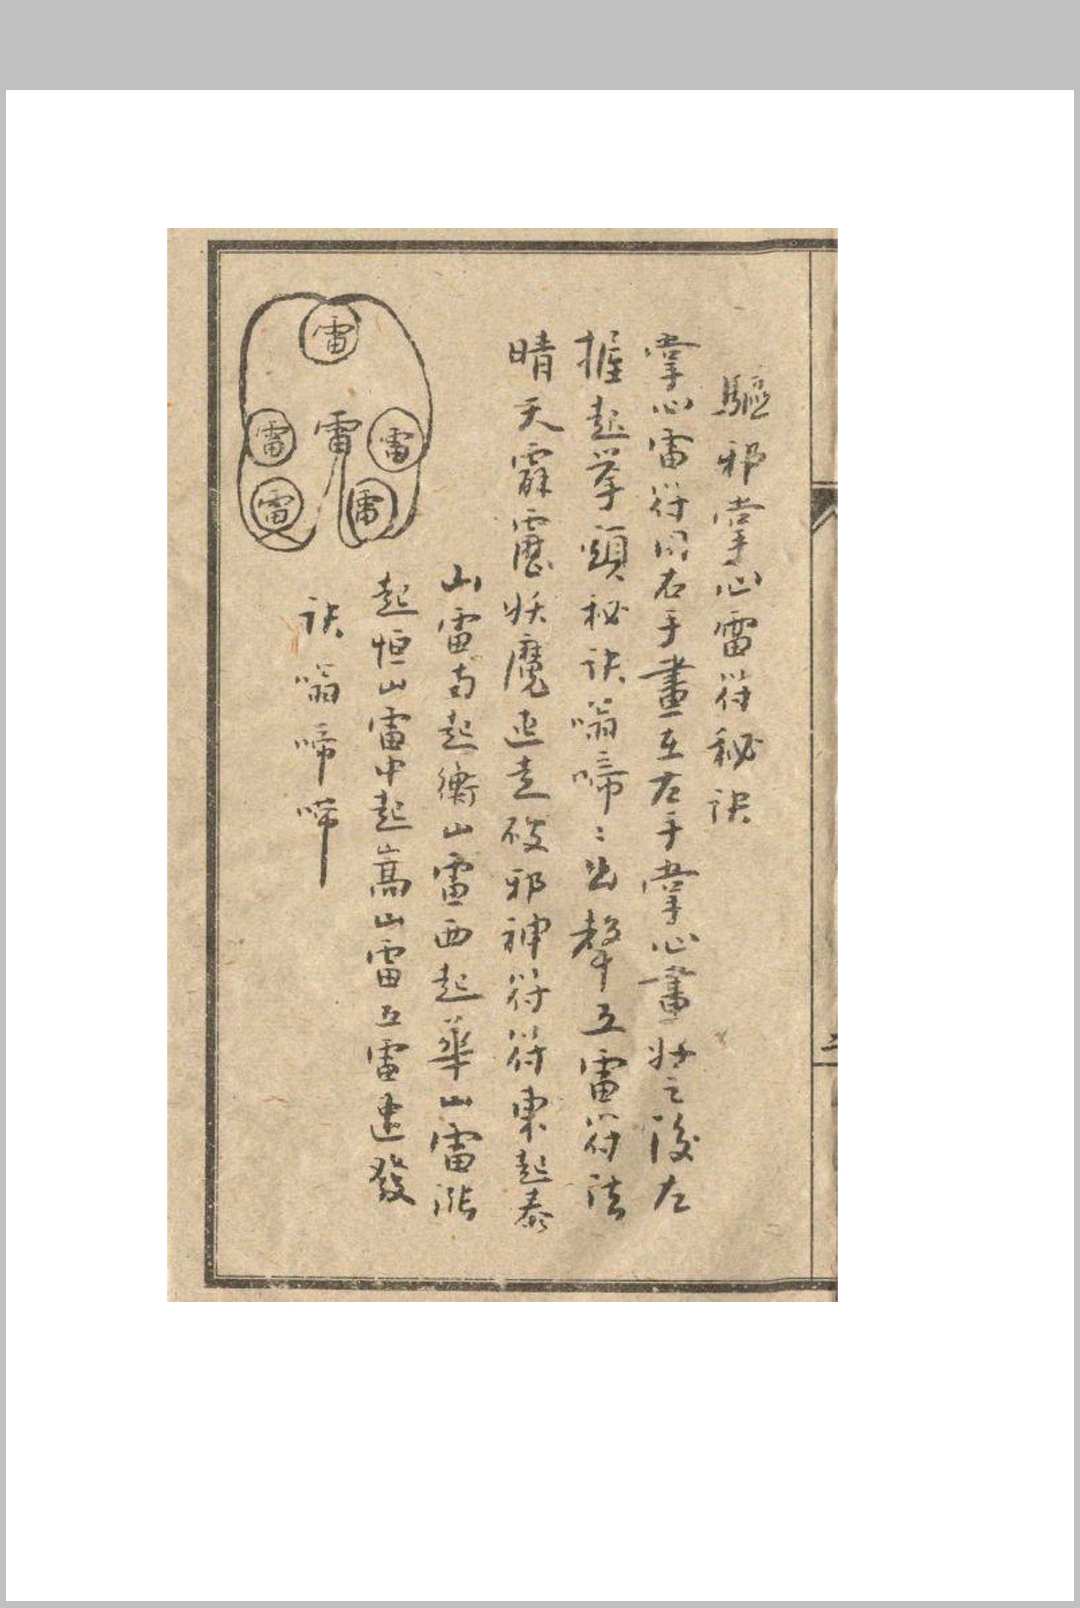 驅邪掌心雷符秘訣
掌心雷符用右手畫在左手掌心畫好之後左
握起拳頭秘訣嗡啼〻出聲五雷符法
晴天霹靂妖魔走破邪神符符東起泰
山雷南起衡山雷西起華山雷
起恒山雷中起嵩山雷五雷速發
訣嗡啼啼
雷
雷 雷 雷
雷 雷